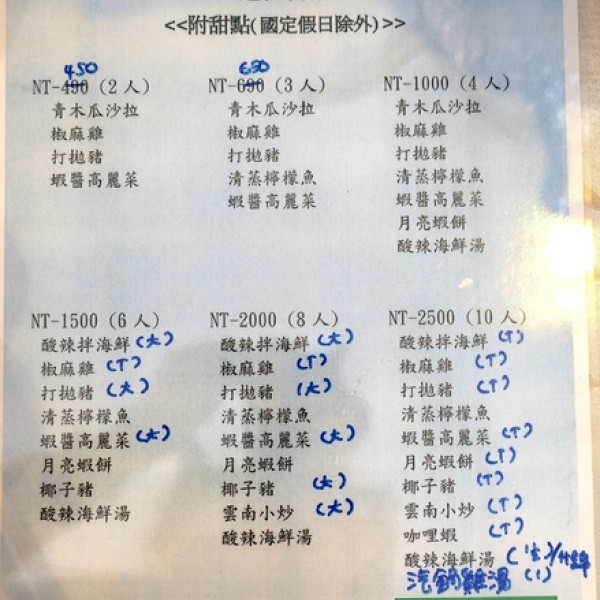 <<附甜點(國定假日除外)>>
450
NT-490 (2 人)
青木瓜沙拉
椒麻雞
打拋豬
蝦醬高麗菜
630
NT-690 (3 人)
青木瓜沙拉
椒麻雞
打拋豬
清蒸檸檬魚
蝦醬高麗菜
NT-1000 (4 人)
青木瓜沙拉
椒麻雞
打拋豬
清蒸檸檬魚
蝦醬高麗菜
月亮蝦餅
酸辣海鮮湯
NT-1500 (6 人)
酸辣拌海鮮(大)
椒麻雞 (T)
打拋豬 (大)
清蒸檸檬魚
蝦醬高麗菜(大)
月亮蝦餅
椰子豬
酸辣海鮮湯
NT-2000 (8 人)
酸辣拌海鮮(大)
椒麻雞 (T)
打拋豬 (大)
清蒸檸檬魚
蝦醬高麗菜(大)
月亮蝦餅
椰子豬 (大)
雲南小炒 (大)
酸辣海鮮湯
NT-2500 (10 人)
酸辣拌海鮮(T)
椒麻雞 (T)
打拋豬 (T)
清蒸檸檬魚
蝦醬高麗菜(T)
月亮蝦餅(T)
椰子豬 (T)
雲南小炒 (T)
咖哩蝦 (T)
酸辣海鮮湯
汽鍋雞湯